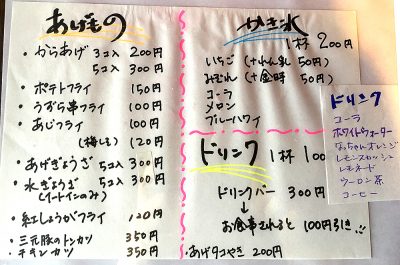 あげもの
・からあげ 3コ入 200円
5コ入 300円
・ポテトフライ 150円
・うずら串フライ 100円
・あじフライ 100円
(梅しそ) 120円
・あげぎょうざ 5コ入 300円
・水ぎょうざ 5コ入 300円
(イートインのみ)
・紅しょうがフライ 120円
・三元豚のトンカツ 350円
・チキンカツ 350円
かき氷
1杯 200円
いちご (+れん乳 50円)
みぞれ (+金時 50円)
コーラ
メロン
ブルーハワイ
ドリンク 1杯 100
ドリンクバー 300円
↓
お食事されると 100円引き!!
・あげタコやき 200円
ドリンク
コーラ
ホワイトウォーター
なっちゃんオレンジ
レモンスカッシュ
レモネード
ウーロン茶
コーヒー